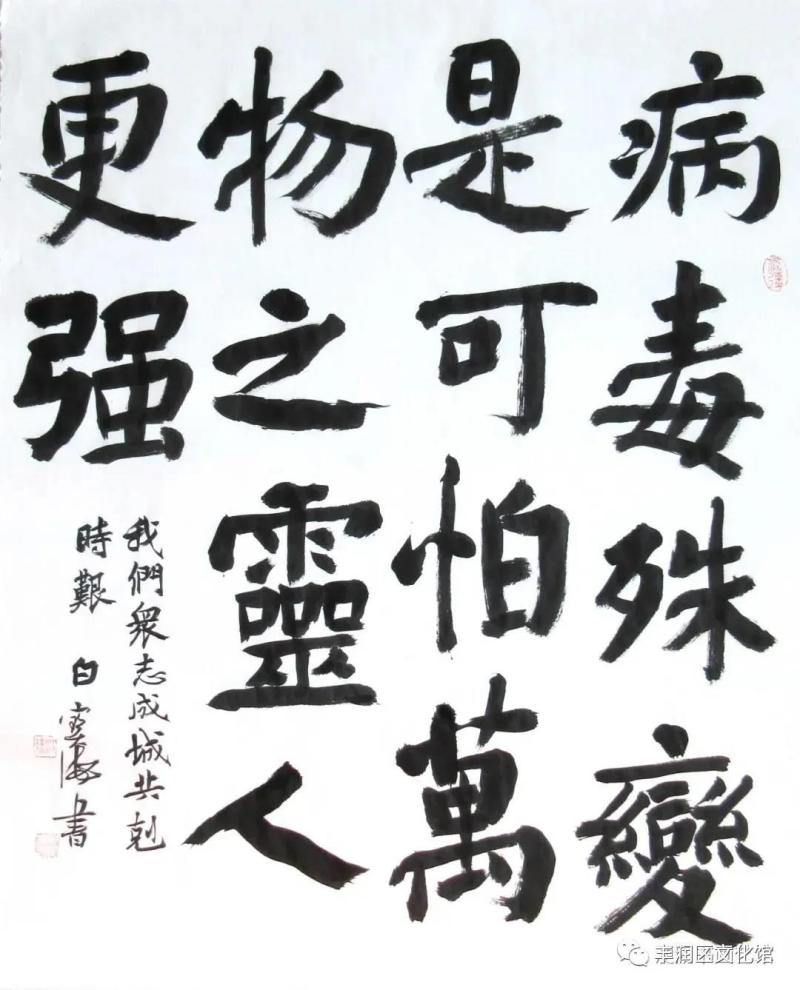 病毒殊變
是可怕萬
物之靈人
更强
我們衆志成城共剋
時艱 白海書
丰润区文化馆